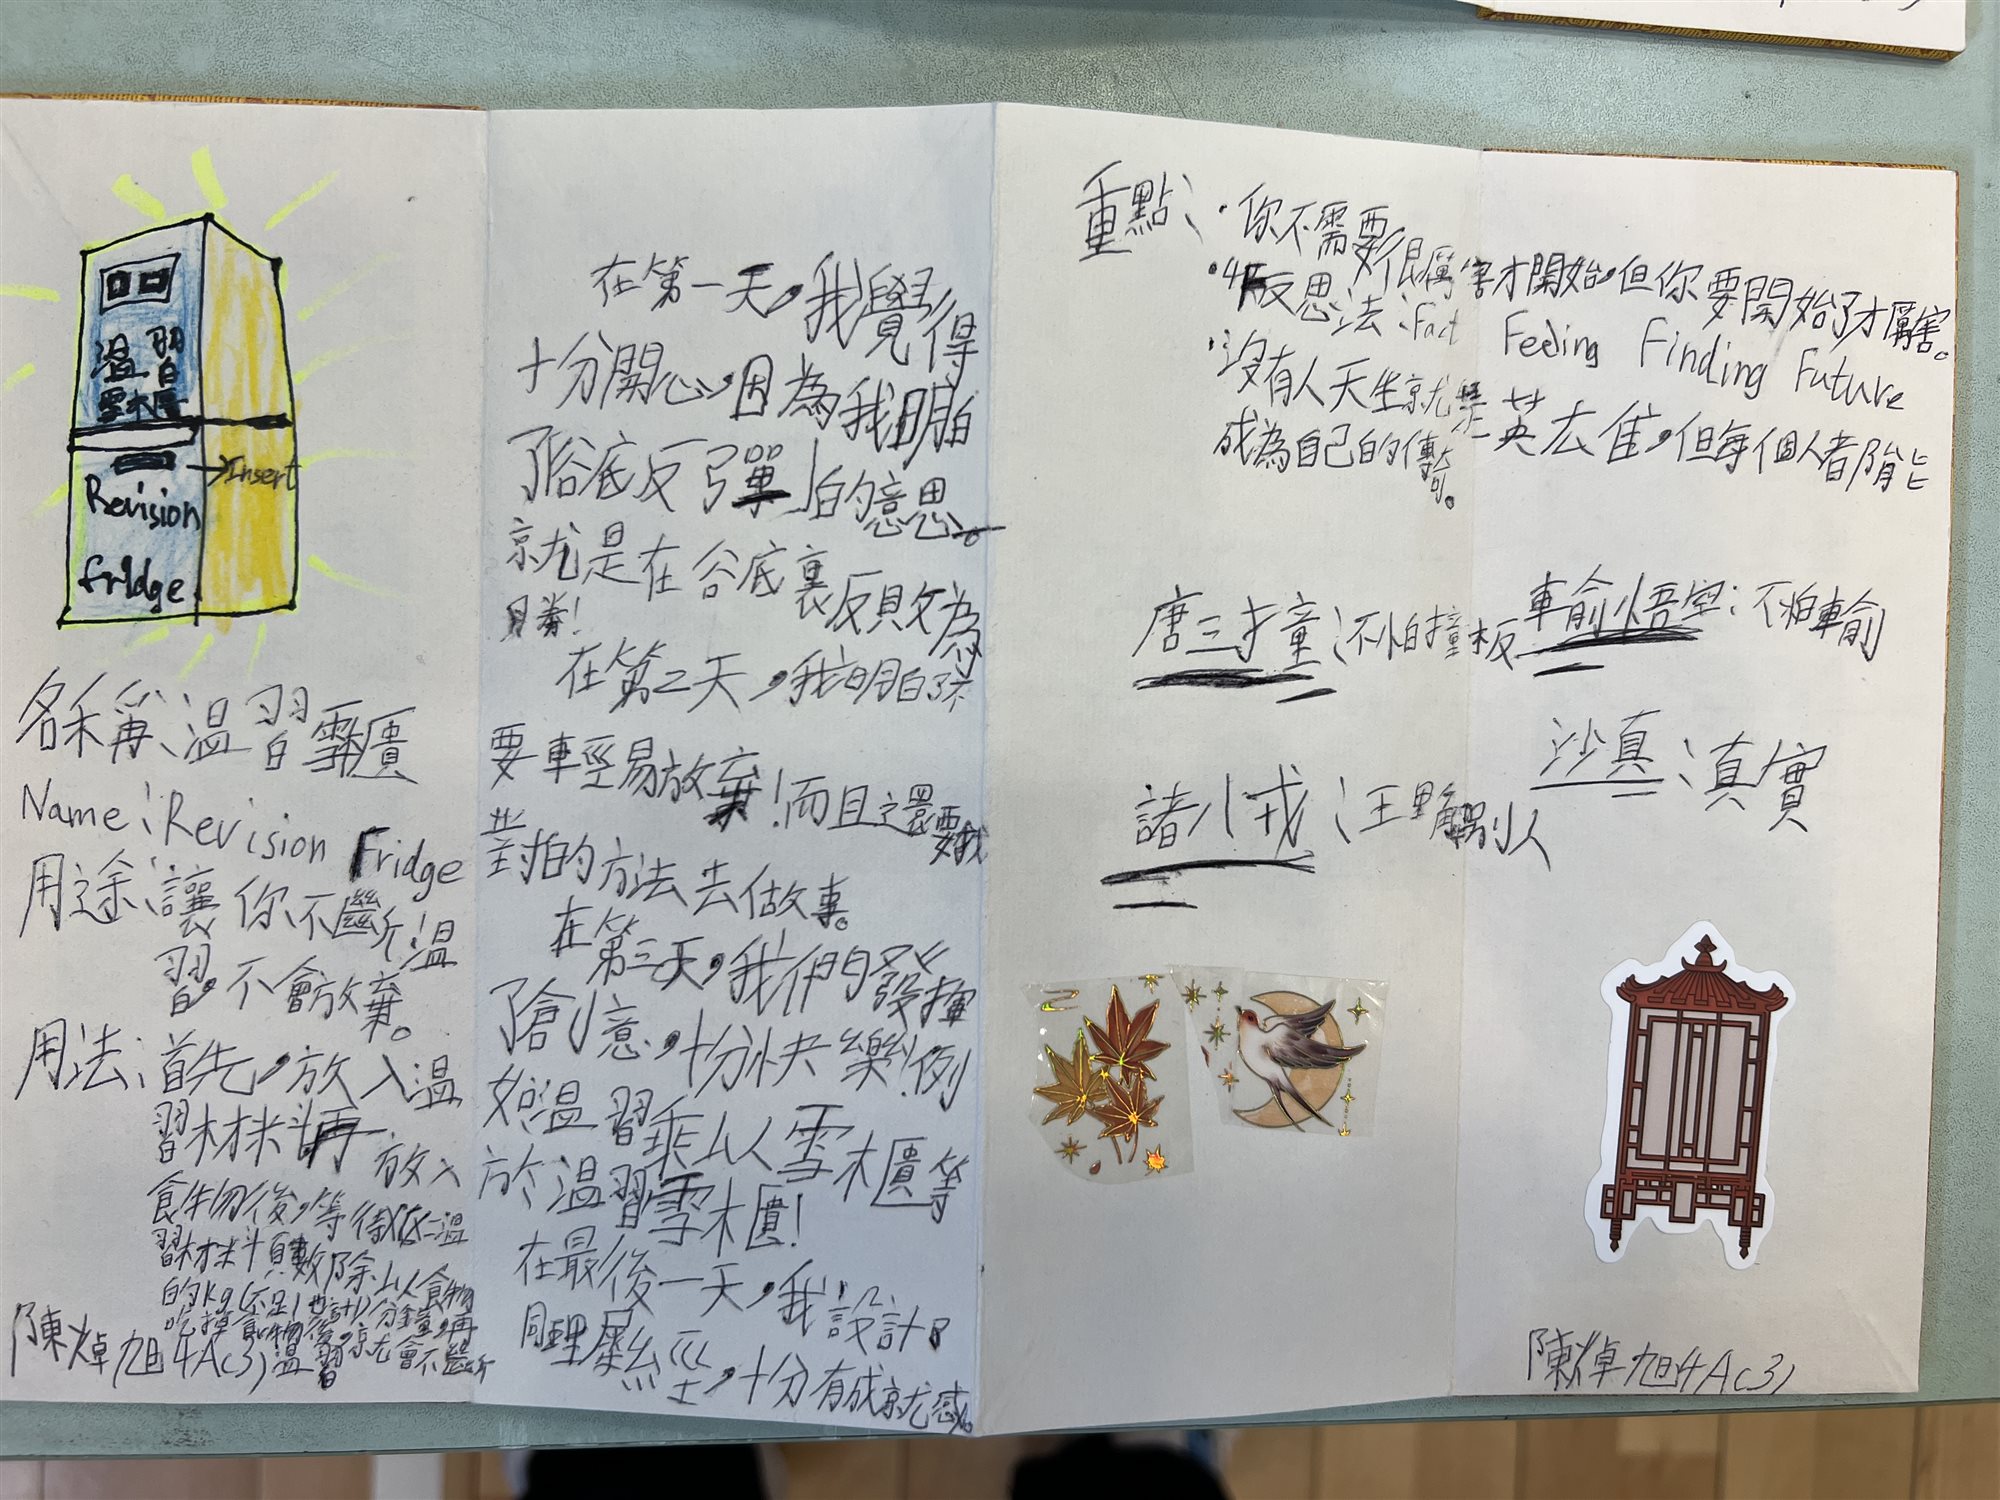 溫習
雪櫃
Insert
Revision
fridge
名稱：溫習雪櫃
Name：Revision Fridge
用途：讓你不斷溫
習，不會放棄。
用法：首先，放入溫
習材料再放入
食物後，等待
習材料頁數除以食物
的kg(不足1也計)分鐘，再
吃掉食物後，就會不斷
溫習
陳焯旭4A(3)
在第一天，我覺得
十分開心，因為我明白
了谷底反彈的意思。
就是在谷底裏反敗為
勝！
在第二天，我明白了不
要輕易放棄！而且還要找
對的方法去做事。
在第三天，我們發揮
了創意，十分快樂！例
如溫習乘以雪櫃等
於溫習雪櫃！
在最後一天，我設計了
，十分有成就感。
重點：·你不需要很厲害才開始，但你要開始了才厲害。
·4F反思法：Fact Feeling Finding Future
·沒有人天生就是英雄，但每個人都能
成為自己的傳奇。
唐三撞：不怕撞板
輸悟空：不怕輸
諸小戎：理解別人
沙真：真實
陳焯旭4A(3)